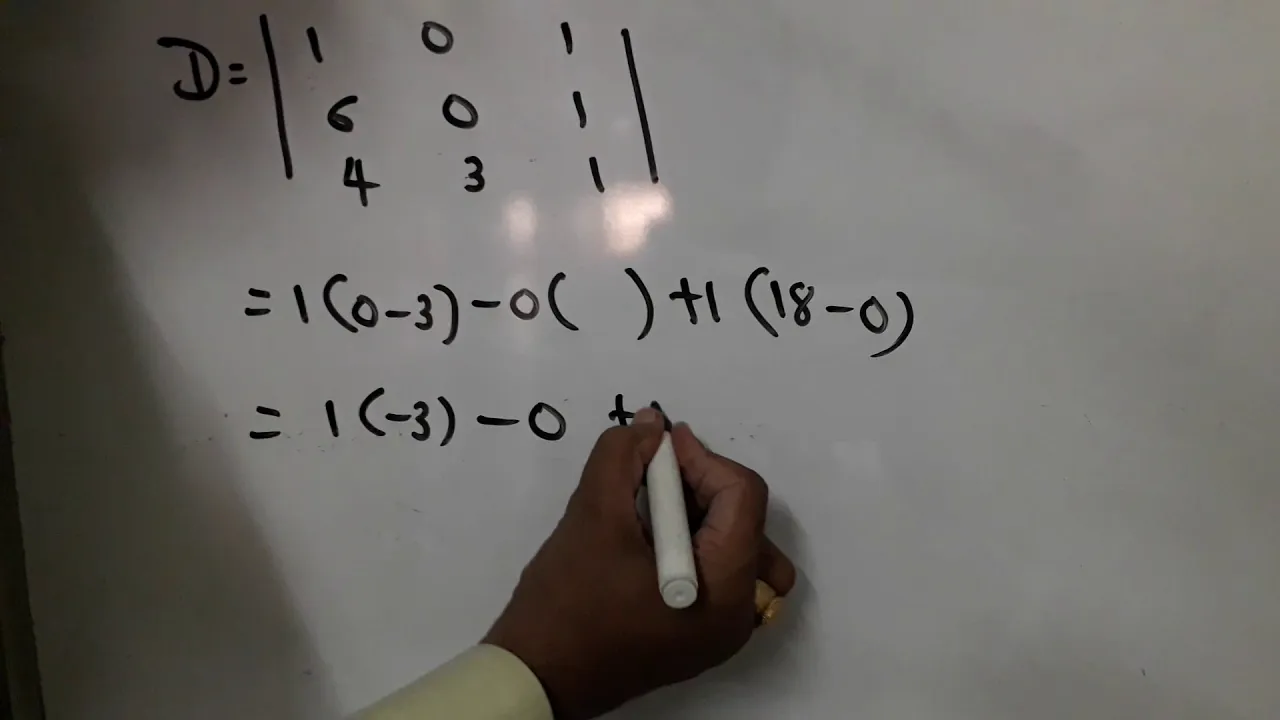 D = | 1 0 1 |
6 0 1
4 3 1
= 1 (0 - 3) - 0 ( ) + 1 (18 - 0)
= 1 (-3) - 0 +